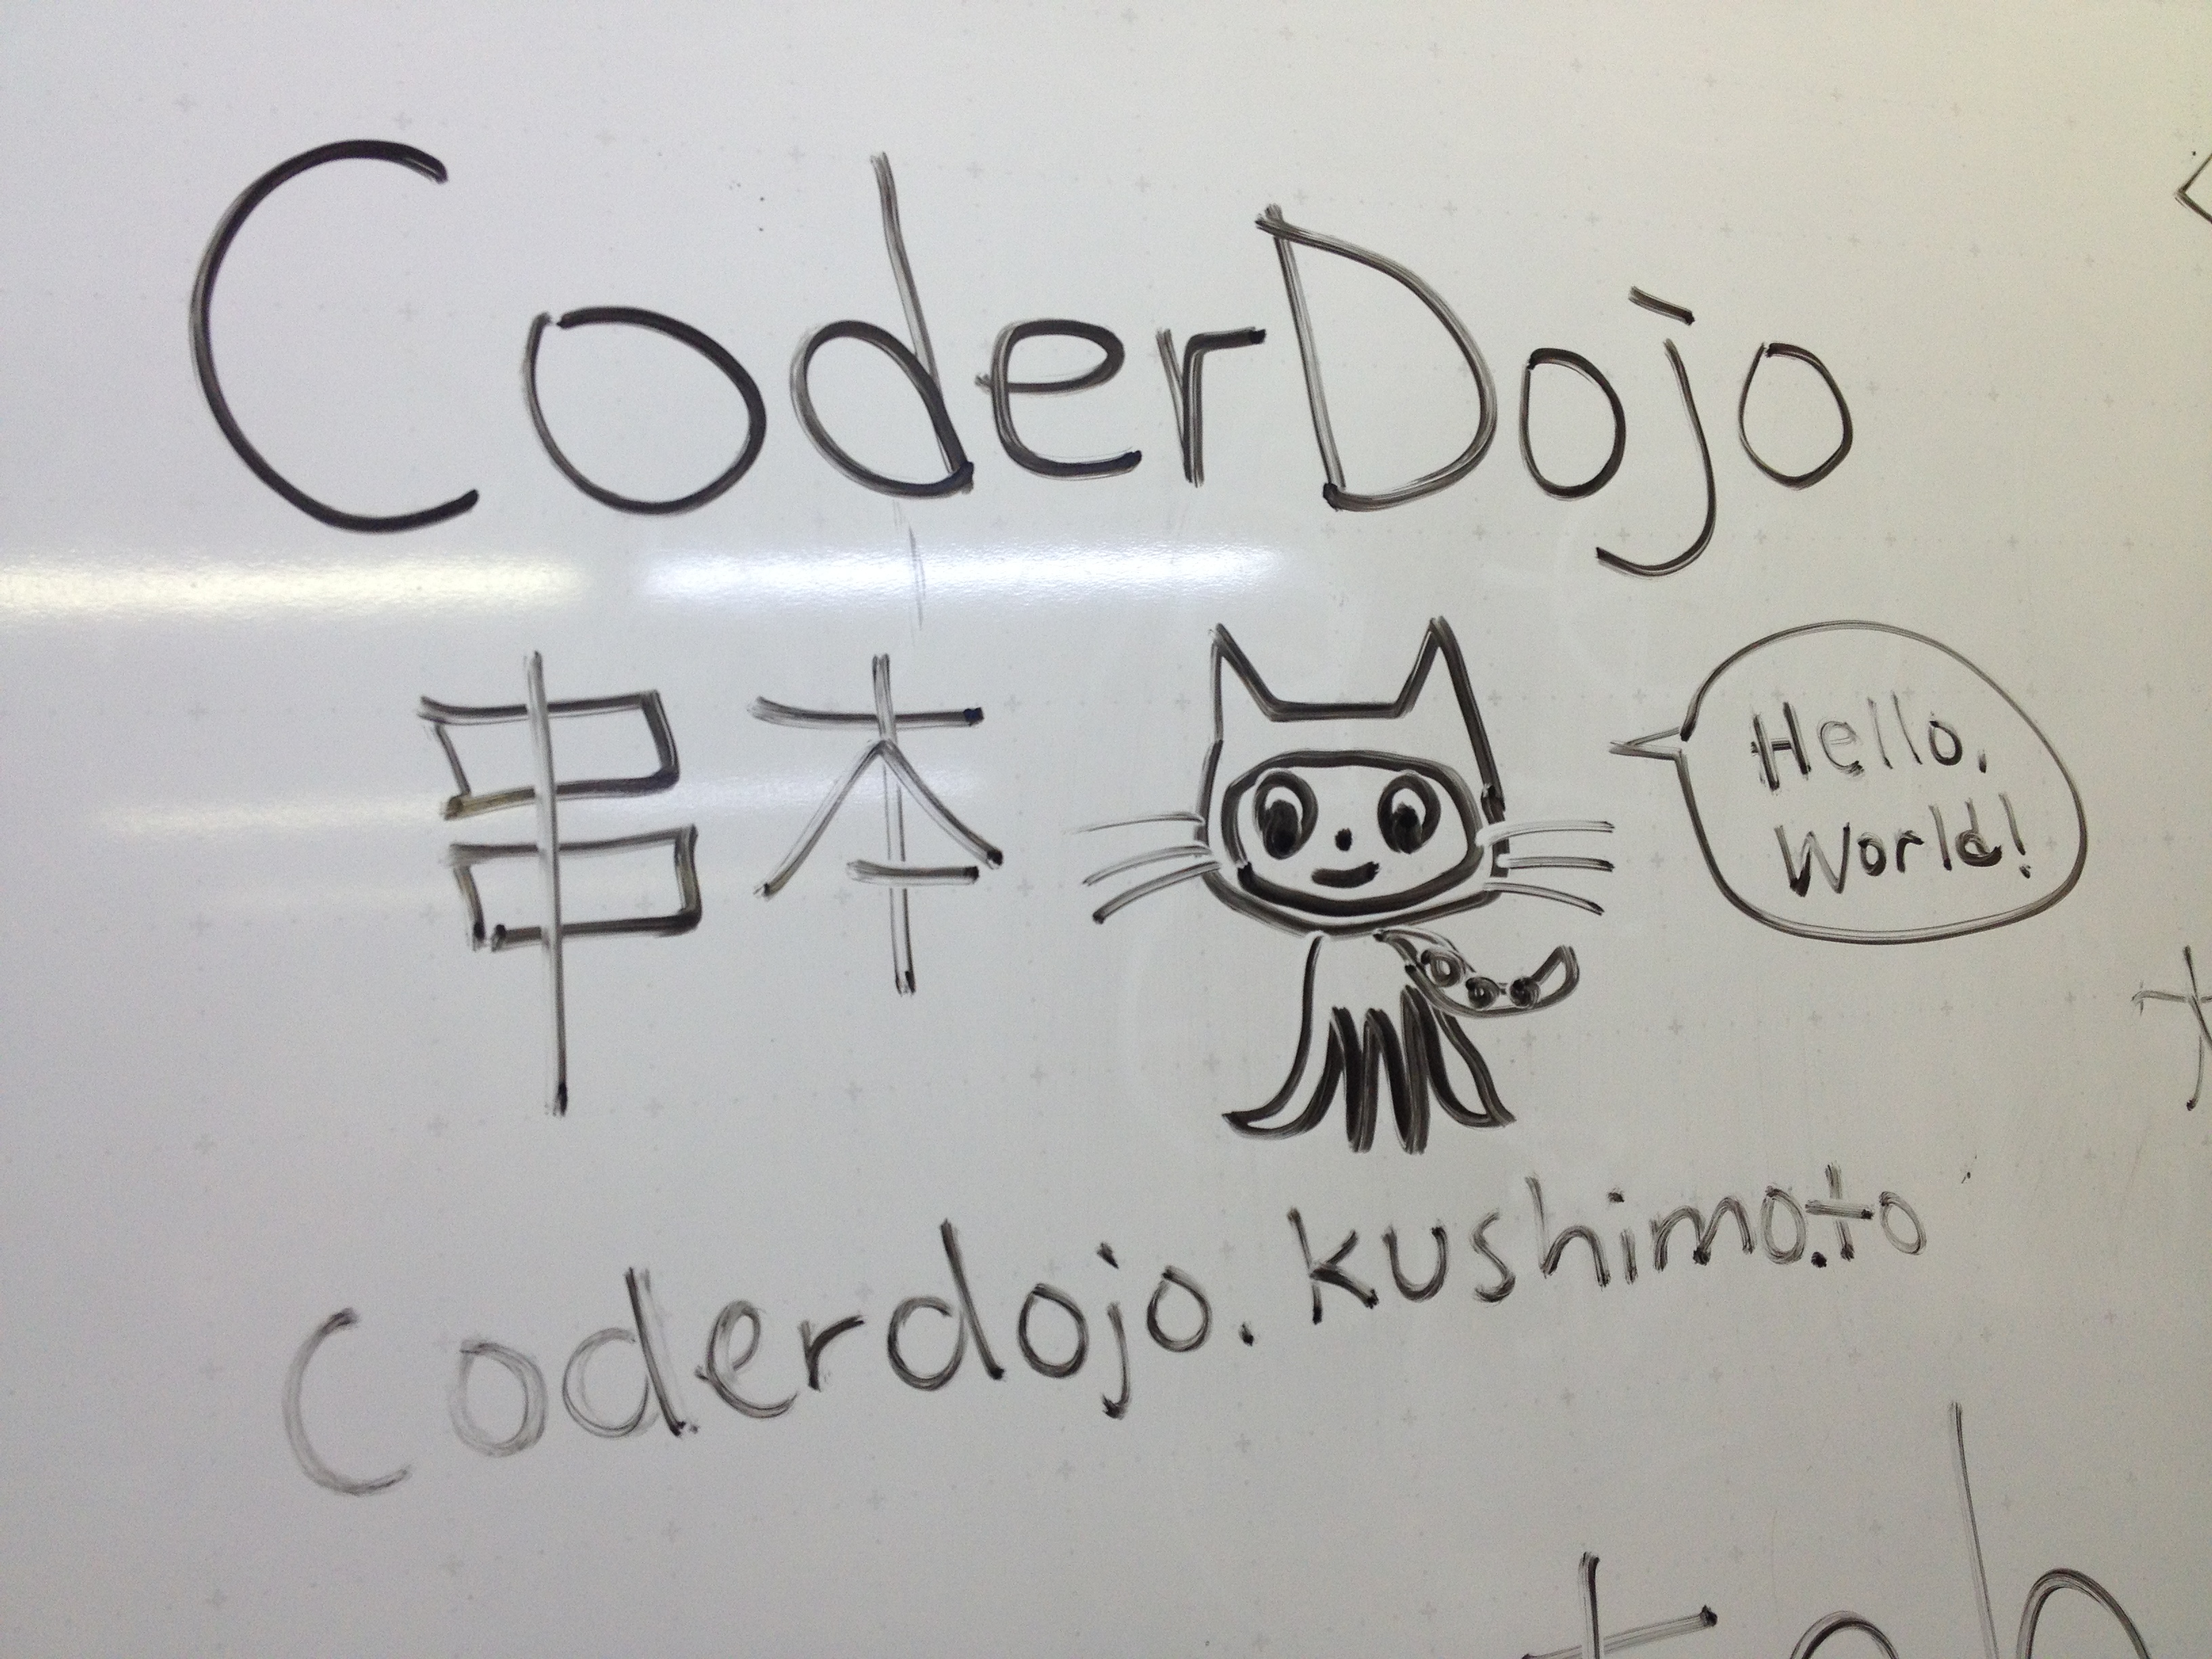 CoderDojo
串本
Hello,
World!
Coderdojo.kushimo.to